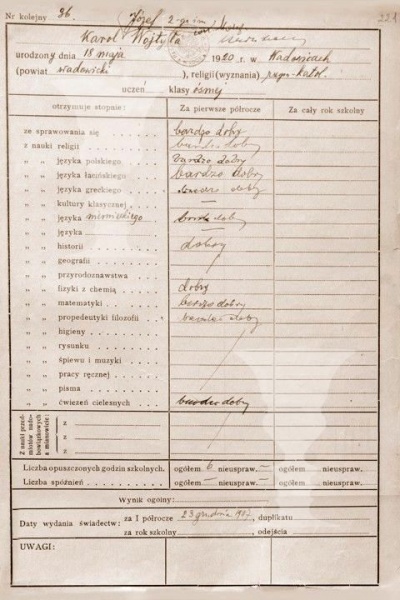 Nr kolejny 26. Józef 2-gie im 221
Karol Wojtyła
urodzony dnia 18 maja 1920 r. w Wadowicach
(powiat wadowicki), religii (wyznania) rzym-katol.
uczeń klasy ósmej
otrzymuje stopnie: Za pierwsze półrocze Za cały rok szkolny
ze sprawowania się bardzo dobry
z nauki religii bardzo dobry
„ „ języka polskiego bardzo dobry
„ „ języka łacińskiego bardzo dobry
„ „ języka greckiego bardzo dobry
„ „ kultury klasycznej —
„ „ języka niemieckiego bardzo dobry
„ „ języka —
„ „ historii dobry
„ „ geografii
„ „ przyrodoznawstwa
„ „ fizyki z chemią dobry
„ „ matematyki bardzo dobry
„ „ propedeutyki filozofii bardzo dobry
„ „ higieny
„ „ rysunku
„ „ śpiewu i muzyki
„ „ pracy ręcznej
„ „ pisma
„ „ ćwiczeń cielesnych bardzo dobry
Z nauki przedmiotów nadobowiązkowych a mianowicie:
z
z
z
Liczba opuszczonych godzin szkolnych. ogółem 6 nieuspraw. — ogółem nieuspraw.
Liczba spóźnień ogółem — nieuspraw. — ogółem nieuspraw.
Wynik ogólny:
Daty wydania świadectw: za I półrocze 23 grudnia 1937, duplikatu
za rok szkolny, odejścia
UWAGI: